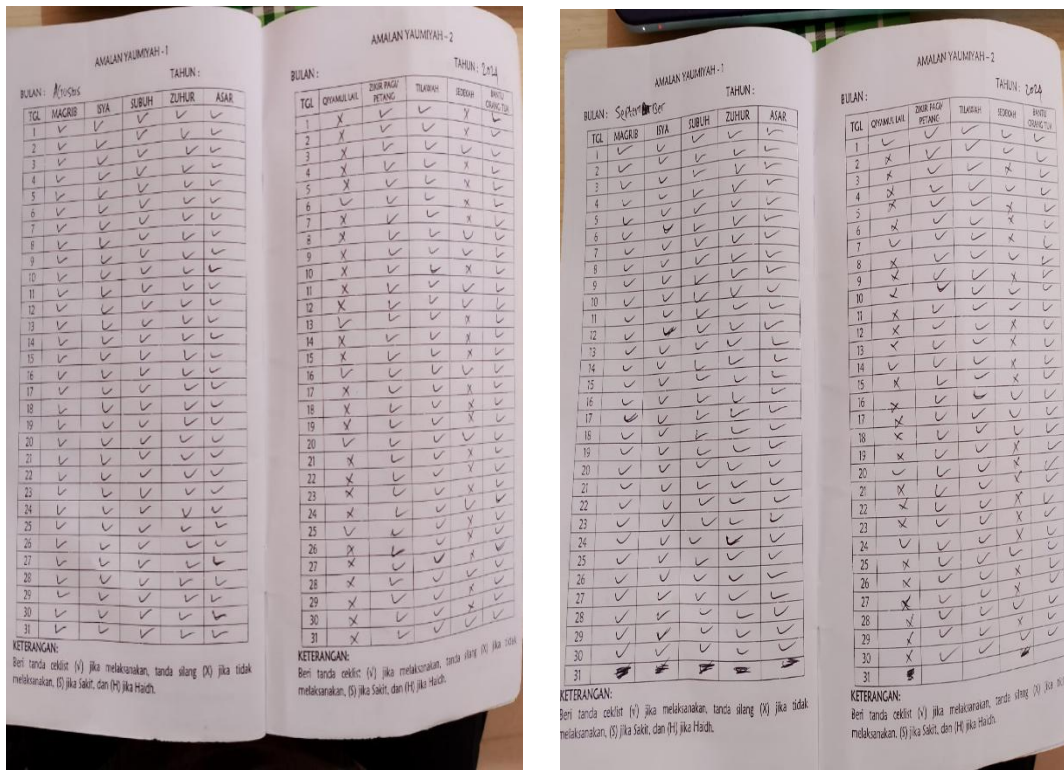 AMALAN YAUMIYAH - 1
BULAN : Agustus TAHUN :
TGL MAGRIB ISYA SUBUH ZUHUR ASAR
1
2
3
4
5
6
7
8
9
10
11
12
13
14
15
16
17
18
19
20
21
22
23
24
25
26
27
28
29
30
31
KETERANGAN:
Beri tanda ceklist (√) jika melaksanakan, tanda silang (X) jika tidak
melaksanakan, (S) jika Sakit, dan (H) jika Haidh.
AMALAN YAUMIYAH - 2
BULAN : TAHUN : 2024
TGL QIYAMUL LAIL ZIKIR PAGI/ PETANG TILAWAH SEDEKAH BANTU ORANG TUA
1
2
3
4
5
6
7
8
9
10
11
12
13
14
15
16
17
18
19
20
21
22
23
24
25
26
27
28
29
30
31
KETERANGAN:
Beri tanda ceklist (√) jika melaksanakan, tanda silang (X) jika tidak
melaksanakan, (S) jika Sakit, dan (H) jika Haidh.
AMALAN YAUMIYAH - 1
BULAN : September TAHUN :
TGL MAGRIB ISYA SUBUH ZUHUR ASAR
1
2
3
4
5
6
7
8
9
10
11
12
13
14
15
16
17
18
19
20
21
22
23
24
25
26
27
28
29
30
31
KETERANGAN:
Beri tanda ceklist (√) jika melaksanakan, tanda silang (X) jika tidak
melaksanakan, (S) jika Sakit, dan (H) jika Haidh.
AMALAN YAUMIYAH - 2
BULAN : TAHUN : 2024
TGL QIYAMUL LAIL ZIKIR PAGI/ PETANG TILAWAH SEDEKAH BANTU ORANG TUA
1
2
3
4
5
6
7
8
9
10
11
12
13
14
15
16
17
18
19
20
21
22
23
24
25
26
27
28
29
30
31
KETERANGAN:
Beri tanda ceklist (√) jika melaksanakan, tanda silang (X) jika
melaksanakan, (S) jika Sakit, dan (H) jika Haidh.